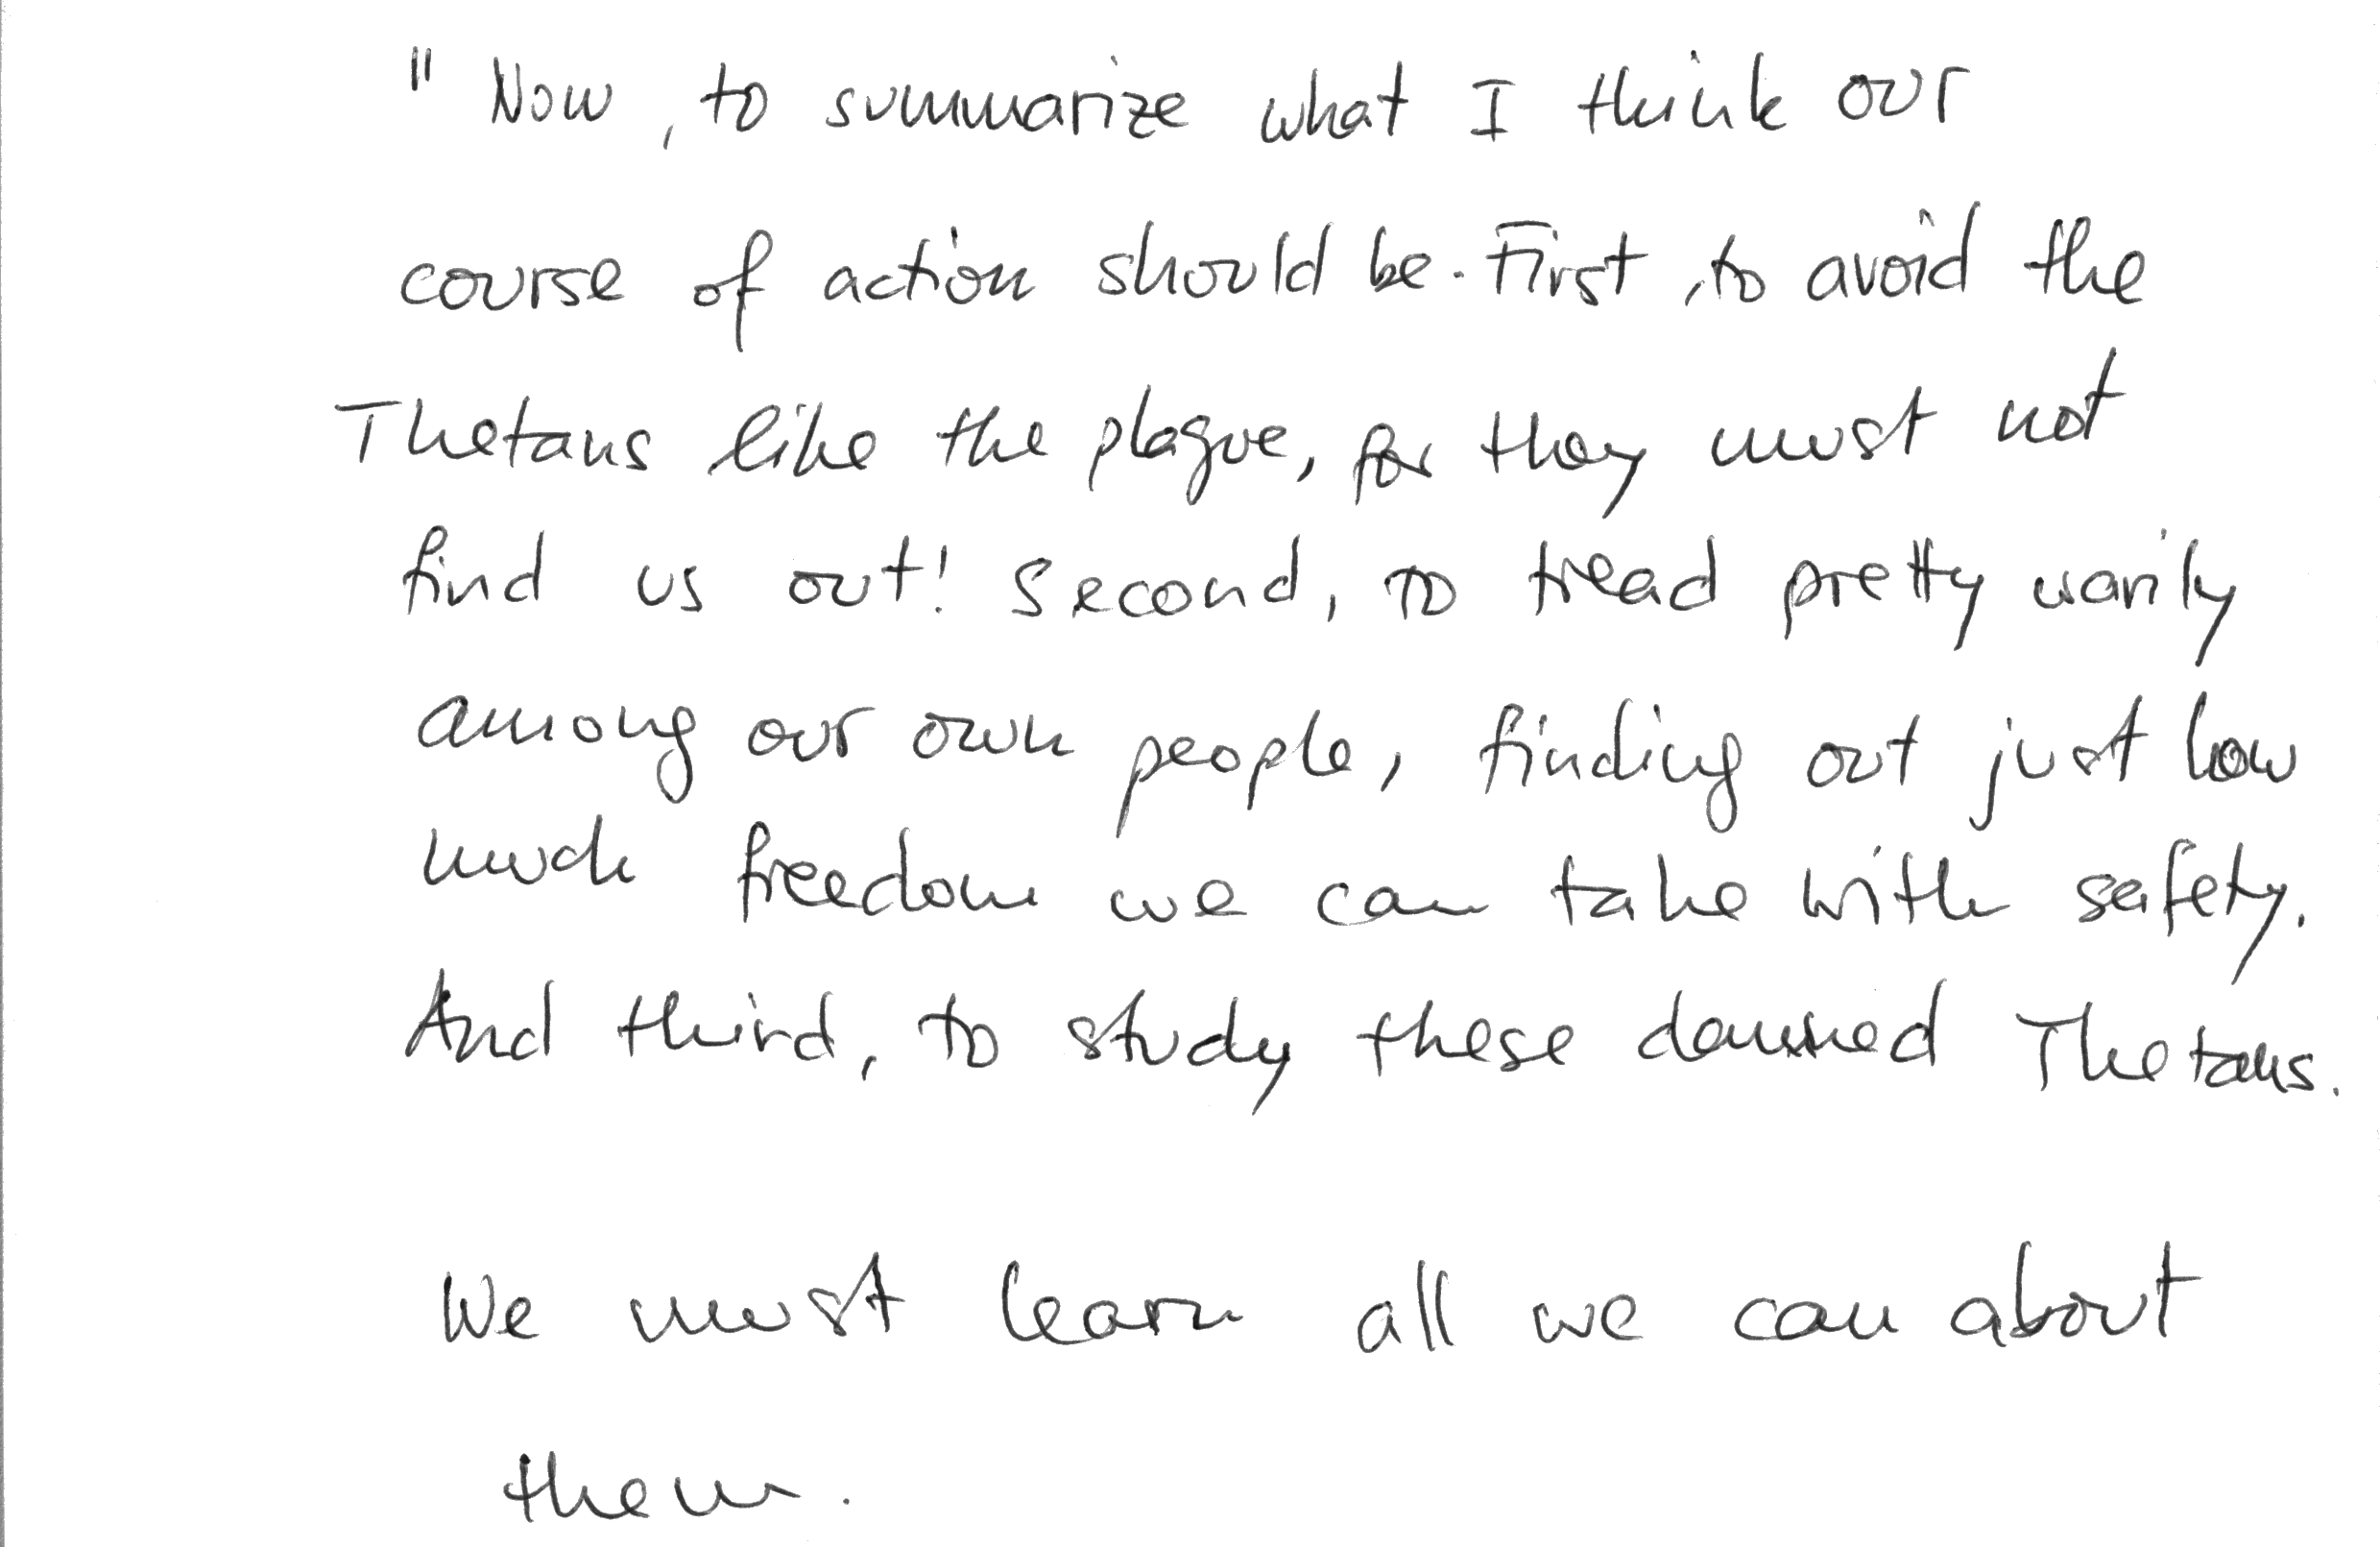 " Now, to summarize what I think our
course of action should be. First, to avoid the
Thetans like the plague, for they must not
find us out! Second, to tread pretty warily
among our own people, finding out just how
much freedom we can take with safety.
And third, to study these damned Thetans.
We must learn all we can about
them.